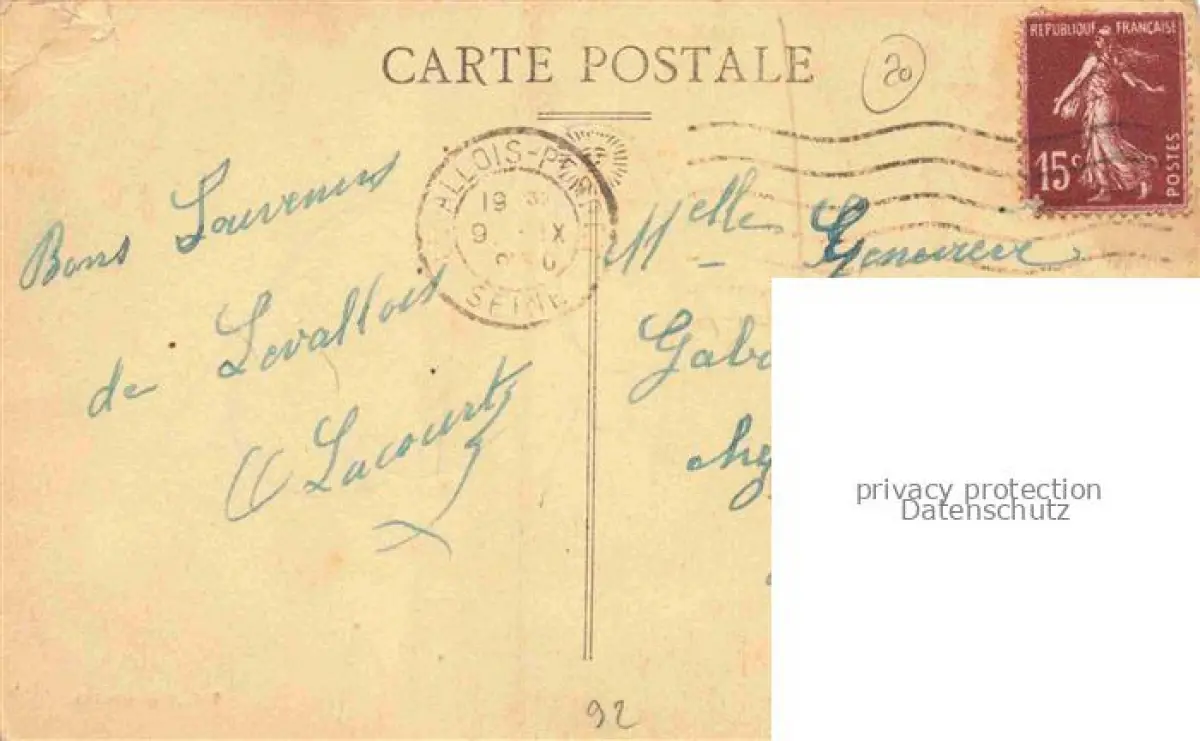 CARTE POSTALE
20
REPUBLIQUE FRANÇAISE
15c
POSTES
ALLOIS-PERRET
19
9 IX
SEINE
Bons Souvenirs
de Levallois
Lacourt
Melle Genevieve
Gabo
chez
privacy protection
Datenschutz
92